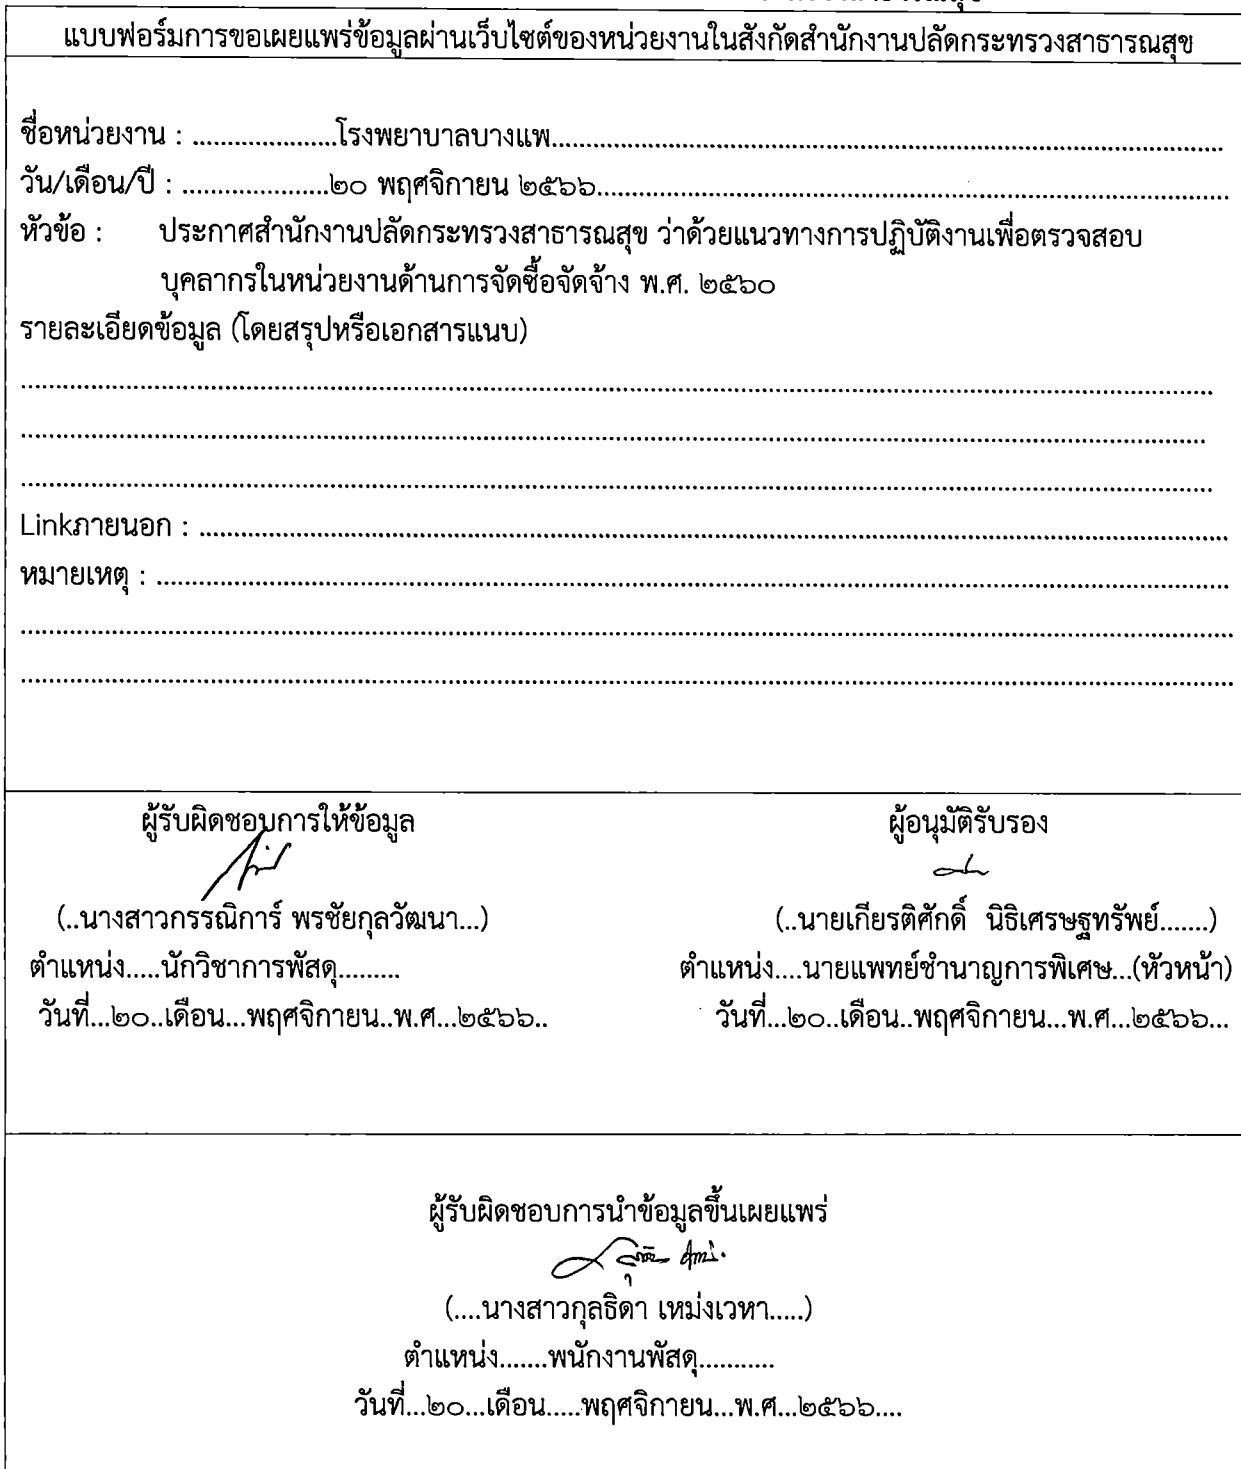 แบบฟอร์มการขอเผยแพร่ข้อมูลผ่านเว็บไซต์ของหน่วยงานในสังกัดสำนักงานปลัดกระทรวงสาธารณสุข
ชื่อหน่วยงาน : .....................โรงพยาบาลบางแพ.................................................................................................
วัน/เดือน/ปี : .....................๒๐ พฤศจิกายน ๒๕๖๖...........................................................................................
หัวข้อ : ประกาศสำนักงานปลัดกระทรวงสาธารณสุข ว่าด้วยแนวทางการปฏิบัติงานเพื่อตรวจสอบ
บุคลากรในหน่วยงานด้านการจัดซื้อจัดจ้าง พ.ศ. ๒๕๖๐
รายละเอียดข้อมูล (โดยสรุปหรือเอกสารแนบ)
Linkภายนอก : ....................................................................................................................................................
หมายเหตุ : ..........................................................................................................................................................
ผู้รับผิดชอบการให้ข้อมูล ผู้อนุมัติรับรอง
(..นางสาวกรรณิการ์ พรชัยกุลวัฒนา...) (..นายเกียรติศักดิ์ นิธิเศรษฐทรัพย์.......)
ตำแหน่ง.....นักวิชาการพัสดุ......... ตำแหน่ง....นายแพทย์ชำนาญการพิเศษ...(หัวหน้า)
วันที่...๒๐..เดือน...พฤศจิกายน..พ.ศ...๒๕๖๖.. วันที่...๒๐..เดือน..พฤศจิกายน...พ.ศ...๒๕๖๖...
ผู้รับผิดชอบการนำข้อมูลขึ้นเผยแพร่
(....นางสาวกุลธิดา เหม่งเวหา.....)
ตำแหน่ง.......พนักงานพัสดุ...........
วันที่...๒๐...เดือน.....พฤศจิกายน...พ.ศ...๒๕๖๖....